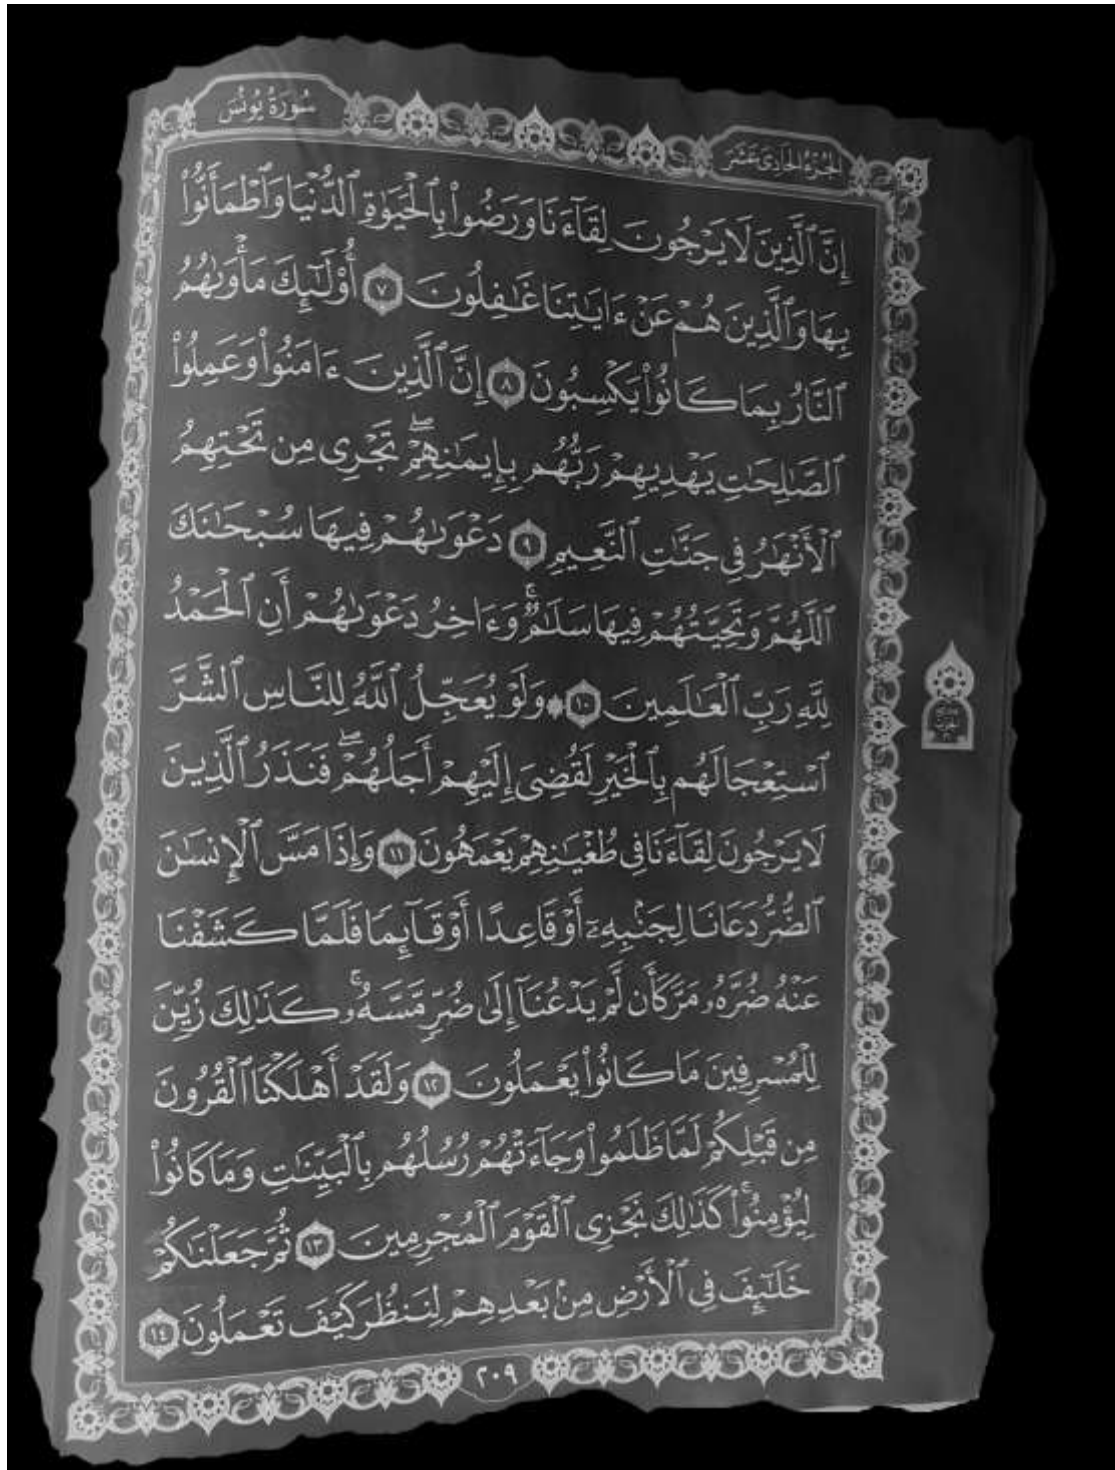 الجزء الحادي عشر
سُورَةُ يُونُسَ
إِنَّ ٱلَّذِينَ لَا يَرْجُونَ لِقَآءَنَا وَرَضُوا۟ بِٱلْحَيَوٰةِ ٱلدُّنْيَا وَٱطْمَأَنُّوا۟
بِهَا وَٱلَّذِينَ هُمْ عَنْ ءَايَٰتِنَا غَٰفِلُونَ ٧ أُو۟لَٰٓئِكَ مَأْوَىٰهُمُ
ٱلنَّارُ بِمَا كَانُوا۟ يَكْسِبُونَ ٨ إِنَّ ٱلَّذِينَ ءَامَنُوا۟ وَعَمِلُوا۟
ٱلصَّٰلِحَٰتِ يَهْدِيهِمْ رَبُّهُم بِإِيمَٰنِهِمْۖ تَجْرِى مِن تَحْتِهِمُ
ٱلْأَنْهَٰرُ فِى جَنَّٰتِ ٱلنَّعِيمِ ٩ دَعْوَىٰهُمْ فِيهَا سُبْحَٰنَكَ
ٱللَّهُمَّ وَتَحِيَّتُهُمْ فِيهَا سَلَٰمٌۚ وَءَاخِرُ دَعْوَىٰهُمْ أَنِ ٱلْحَمْدُ
لِلَّهِ رَبِّ ٱلْعَٰلَمِينَ ١٠ ۞ وَلَوْ يُعَجِّلُ ٱللَّهُ لِلنَّاسِ ٱلشَّرَّ
ٱسْتِعْجَالَهُم بِٱلْخَيْرِ لَقُضِىَ إِلَيْهِمْ أَجَلُهُمْۖ فَنَذَرُ ٱلَّذِينَ
لَا يَرْجُونَ لِقَآءَنَا فِى طُغْيَٰنِهِمْ يَعْمَهُونَ ١١ وَإِذَا مَسَّ ٱلْإِنسَٰنَ
ٱلضُّرُّ دَعَانَا لِجَنۢبِهِۦٓ أَوْ قَاعِدًا أَوْ قَآئِمًا فَلَمَّا كَشَفْنَا
عَنْهُ ضُرَّهُۥ مَرَّ كَأَن لَّمْ يَدْعُنَآ إِلَىٰ ضُرٍّ مَّسَّهُۥۚ كَذَٰلِكَ زُيِّنَ
لِلْمُسْرِفِينَ مَا كَانُوا۟ يَعْمَلُونَ ١٢ وَلَقَدْ أَهْلَكْنَا ٱلْقُرُونَ
مِن قَبْلِكُمْ لَمَّا ظَلَمُوا۟ وَجَآءَتْهُمْ رُسُلُهُم بِٱلْبَيِّنَٰتِ وَمَا كَانُوا۟
لِيُؤْمِنُوا۟ۚ كَذَٰلِكَ نَجْزِى ٱلْقَوْمَ ٱلْمُجْرِمِينَ ١٣ ثُمَّ جَعَلْنَٰكُمْ
خَلَٰٓئِفَ فِى ٱلْأَرْضِ مِنۢ بَعْدِهِمْ لِنَنظُرَ كَيْفَ تَعْمَلُونَ ١٤
٢٠٩